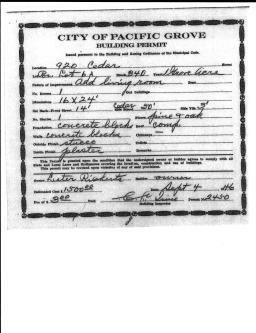 CITY OF PACIFIC GROVE
BUILDING PERMIT
Issued pursuant to the Building and Zoning Ordinance of the Municipal Code.
Location 920 Cedar Street
Lot 6A Block 340 Acre
Nature of Improvement Add living room
No. Stories 1
Dimensions 16 x 24'
Set Back—Front 14' Cedar 30' Side Yds 3'
No. Stories 1 Floors pine & oak
Foundation concrete blocks Roof comp.
Walls concrete blocks Chimneys
Outside Finish stucco
Inside Finish plaster Remarks
This Permit is granted upon the condition that the undersigned owner or builder agrees to comply with all
State and Local Laws and Ordinances covering the location, construction and use of buildings.
This permit may be revoked upon violation of any of said provisions.
Owner Builder owner
Estimated Cost $ 1500.00 Date Sept 4 46
Fee of $ 3.00 Paid Permit No 2450
Building Inspector